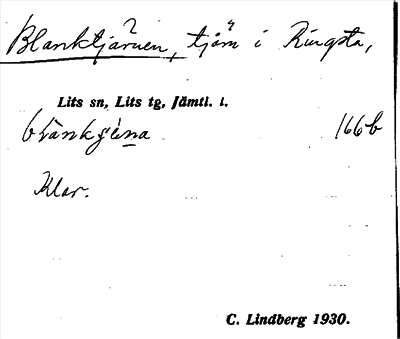 Blanktjärnen, tjärn i Ringsta,
Lits sn, Lits tg, Jämtl. l.
166b
Klar.
C. Lindberg 1930.